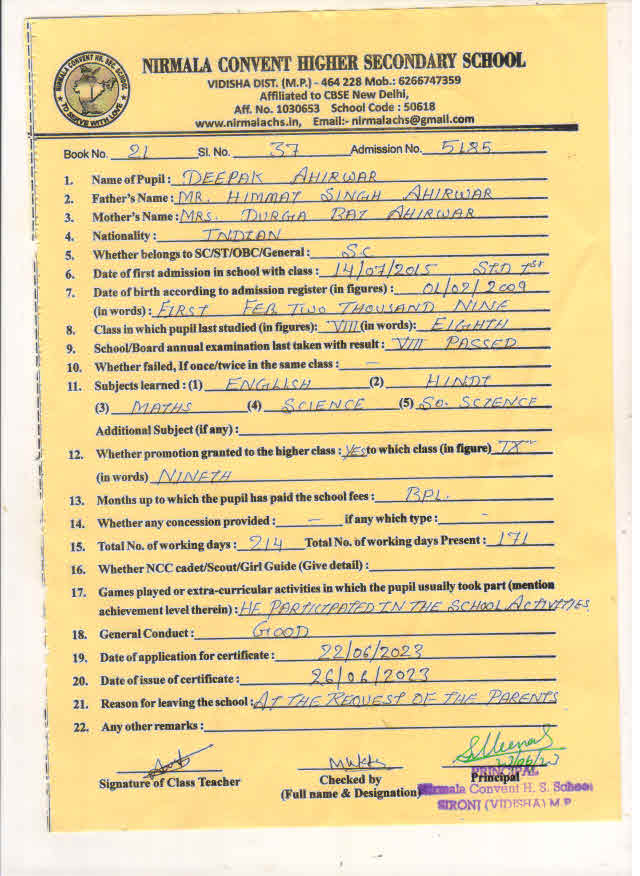 NIRMALA CONVENT HR. SEC. SCHOOL
TO SERVE WITH LOVE
NIRMALA CONVENT HIGHER SECONDARY SCHOOL
VIDISHA DIST. (M.P.) - 464 228 Mob.: 6266747359
Affiliated to CBSE New Delhi,
Aff. No. 1030653 School Code : 50618
www.nirmalachs.in, Email:- nirmalachs@gmail.com
Book No. 21 Sl. No. 37 Admission No. 5185
1. Name of Pupil : DEEPAK AHIRWAR
2. Father's Name : MR. HIMMAT SINGH AHIRWAR
3. Mother's Name : MRS. DURGA BAI AHIRWAR
4. Nationality : INDIAN
5. Whether belongs to SC/ST/OBC/General : S.C
6. Date of first admission in school with class : 14/07/2015 STD 1st
7. Date of birth according to admission register (in figures) : 01/02/2009
(in words) : FIRST FEB TWO THOUSAND NINE
8. Class in which pupil last studied (in figures): VIII (in words): EIGHTH
9. School/Board annual examination last taken with result : VIII PASSED
10. Whether failed, If once/twice in the same class : —
11. Subjects learned : (1) ENGLISH (2) HINDI
(3) MATHS (4) SCIENCE (5) SO. SCIENCE
Additional Subject (if any) :
12. Whether promotion granted to the higher class : YES to which class (in figure) IX
(in words) NINETH
13. Months up to which the pupil has paid the school fees : BPL.
14. Whether any concession provided : — if any which type : -
15. Total No. of working days : 214 Total No. of working days Present : 171
16. Whether NCC cadet/Scout/Girl Guide (Give detail) :
17. Games played or extra-curricular activities in which the pupil usually took part (mention
achievement level therein) : HE PARTICIPATED IN THE SCHOOL ACTIVITIES
18. General Conduct : GOOD
19. Date of application for certificate : 22/06/2023
20. Date of issue of certificate : 26/06/2023
21. Reason for leaving the school : AT THE REQUEST OF THE PARENTS
22. Any other remarks :
Signature of Class Teacher
Checked by
(Full name & Designation)
Principal
PRINCIPAL
Nirmala Convent H. S. School
SIRONJ (VIDISHA) M.P